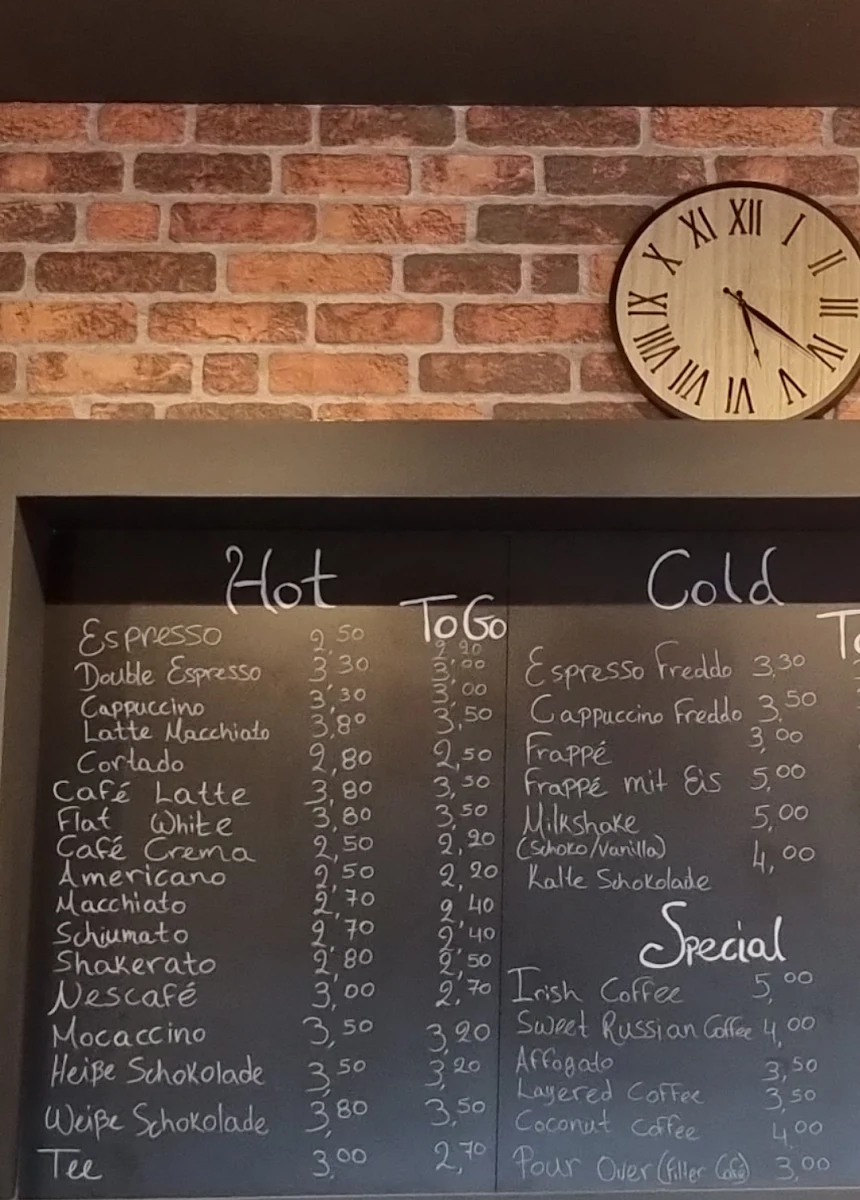 XII
I
II
III
IV
V
VI
VII
VIII
IX
X
XI
Hot
ToGo
Espresso 2,50 2,20
Double Espresso 3,30 3,00
Cappuccino 3,30 3,00
Latte Macchiato 3,80 3,50
Cortado 2,80 2,50
Café Latte 3,80 3,50
Flat White 3,80 3,50
Café Crema 2,50 2,20
Americano 2,50 2,20
Macchiato 2,70 2,40
Schiumato 2,70 2,40
Shakerato 2,80 2,50
Nescafé 3,00 2,70
Mocaccino 3,50 3,20
Heiße Schokolade 3,50 3,20
Weiße Schokolade 3,80 3,50
Tee 3,00 2,70
Cold
Espresso Freddo 3,30
Cappuccino Freddo 3,50
Frappé 3,00
Frappé mit Eis 5,00
Milkshake 5,00
(Schoko/Vanilla)
Kalte Schokolade 4,00
Special
Irish Coffee 5,00
Sweet Russian Coffee 4,00
Affogato 3,50
Layered Coffee 3,50
Coconut Coffee 4,00
Pour Over (Filter Café) 3,00